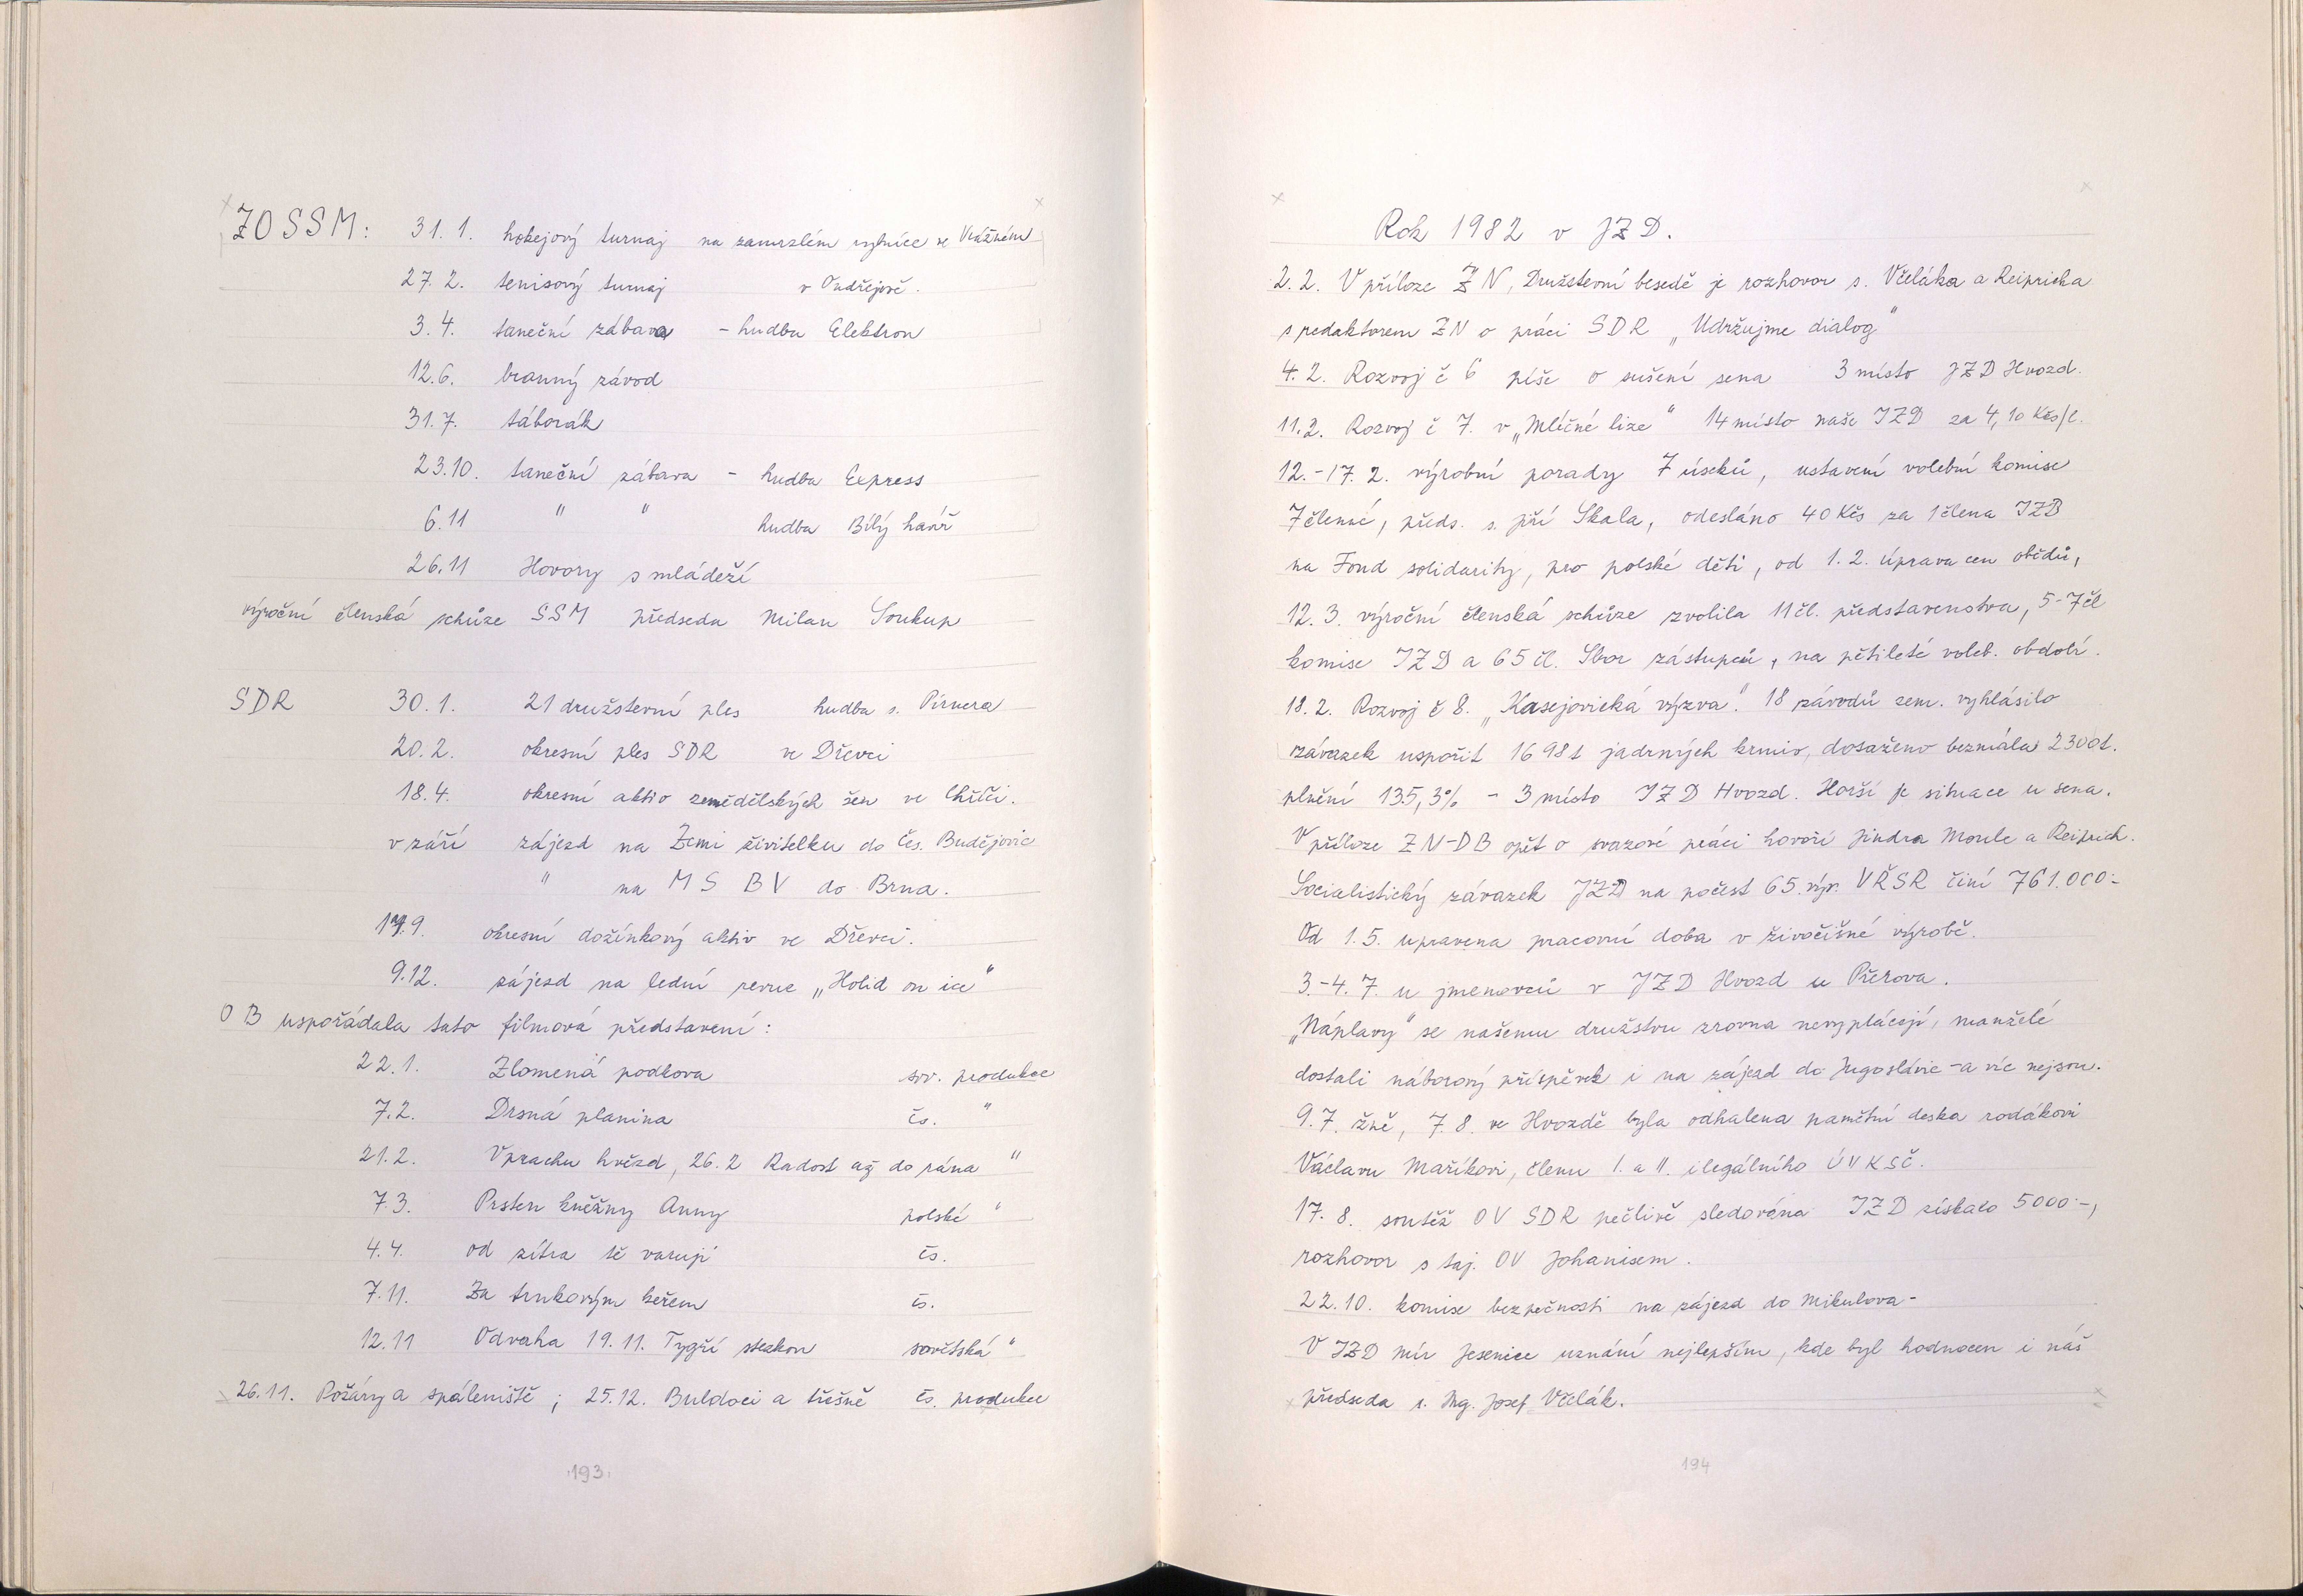 ZO SSM: 31. 1. hokejový turnaj na zamrzlém rybníce ve Vrážném
27. 2. tenisový turnaj v Ondřejově.
3. 4. taneční zábava - hudba Elektron
12. 6. branný závod
31. 7. táborák
23. 10. taneční zábava - hudba Express
6. 11 " " hudba Bílý havíř
26. 11 Hovory s mládeží
výroční členská schůze SSM předseda Milan Soukup
SDR 30. 1. 21 družstevní ples hudba s. Pirnera
20. 2. okresní ples SDR ve Dřevci
18. 4. okresní aktiv zemědělských žen ve Chříči.
v září zájezd na Zemi živitelku do Čes. Budějovic
" na MS BV do Brna.
9. okresní dožínkový aktiv ve Dřevci.
9. 12. zájezd na lední revue „Holid on ice"
OB uspořádala tato filmová představení:
22. 1. Zlomená podkova sov. produkce
7. 2. Drsná planina čs. "
21. 2. V prachu hvězd, 26. 2 Radost až do rána "
7. 3. Prsten kněžny Anny polské "
4. 4. od zítra tě varují čs.
7. 11. Za trnkovým keřem čs.
12. 11 Odvaha 19. 11. Tygří stezkou sovětská "
26. 11. Požáry a spáleniště; 25. 12. Buldoci a třešně čs. produkce
193
Rok 1982 v JZD.
2. 2. V příloze ZN, Družstevní besedě je rozhovor s. Včeláka a Reipricha
s redaktorem ZN o práci SDR „Udržujme dialog"
4. 2. Rozvoj č 6 píše o sušení sena 3 místo JZD Hvozd.
11. 2. Rozvoj č 7. v „Mléčné lize" 14 místo naše JZD za 4,10 Kčs/l.
12.-17. 2. výrobní porady 7 úseků, ustavení volební komise
7členné, předs. s. Jiří Skala, odesláno 40 Kčs za 1 člena JZD
na Fond solidarity, pro polské děti, od 1. 2. úprava cen obědů,
12. 3. výroční členská schůze zvolila 11 čl. představenstva, 5-7 čl
komise JZD a 65 čl. Sbor zástupců, na pětileté voleb. období.
18. 2. Rozvoj č 8. „Kasejovická výzva". 18 závodů zem. vyhlásilo
závazek uspořit 1698 t jadrných krmiv, dosaženo bezmála 2300 t.
plnění 135,3% - 3 místo JZD Hvozd. Horší je situace u sena.
V příloze ZN-DB opět o svazové práci hovoří Jindra Moule a Reiprich.
Socialistický závazek JZD na počest 65. výr. VŘSR činí 761.000.-
Od 1. 5. upravena pracovní doba v živočišné výrobě.
3.-4. 7. u jmenovců v JZD Hvozd u Přerova.
„Náplavy" se našemu družstvu zrovna nevyplácejí, manželé
dostali náborový příspěvek i na zájezd do Jugoslávie - a víc nejsou.
9. 7. žně, 7. 8. ve Hvozdě byla odhalena pamětní deska rodákovi
Václavu Maříkovi, členu I. a II. ilegálního ÚV KSČ.
17. 8. soutěž OV SDR pečlivě sledována JZD získalo 5000.-,
rozhovor s taj. OV Johanisem.
22. 10. komise bezpečnosti na zájezd do Mikulova -
V JZD Mír Jesenice uznání nejlepším, kde byl hodnocen i náš
předseda s. Ing. Josef Včelák.
194